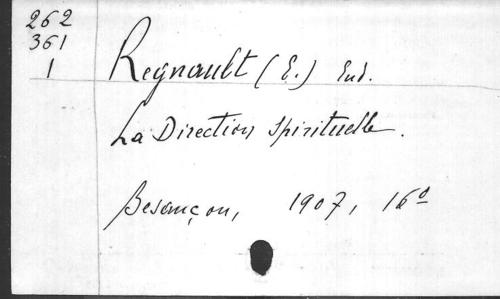 262
361
1
Regnault (E.) Eud.
La Direction Spirituelle.
Besançon, 1907, 16º